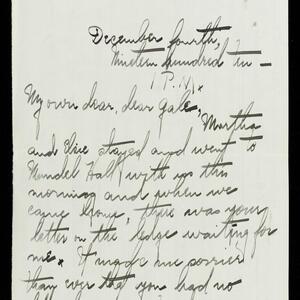 December fourth,
Nineteen hundred ten —
1 P.M.
My own dear, dear Gale,
Martha
and Elsie stayed and went to
Mandel Hall with us this
morning and when we
came home, there was your
letter on the ledge waiting for
me. It made me sorrier
than ever that you had no